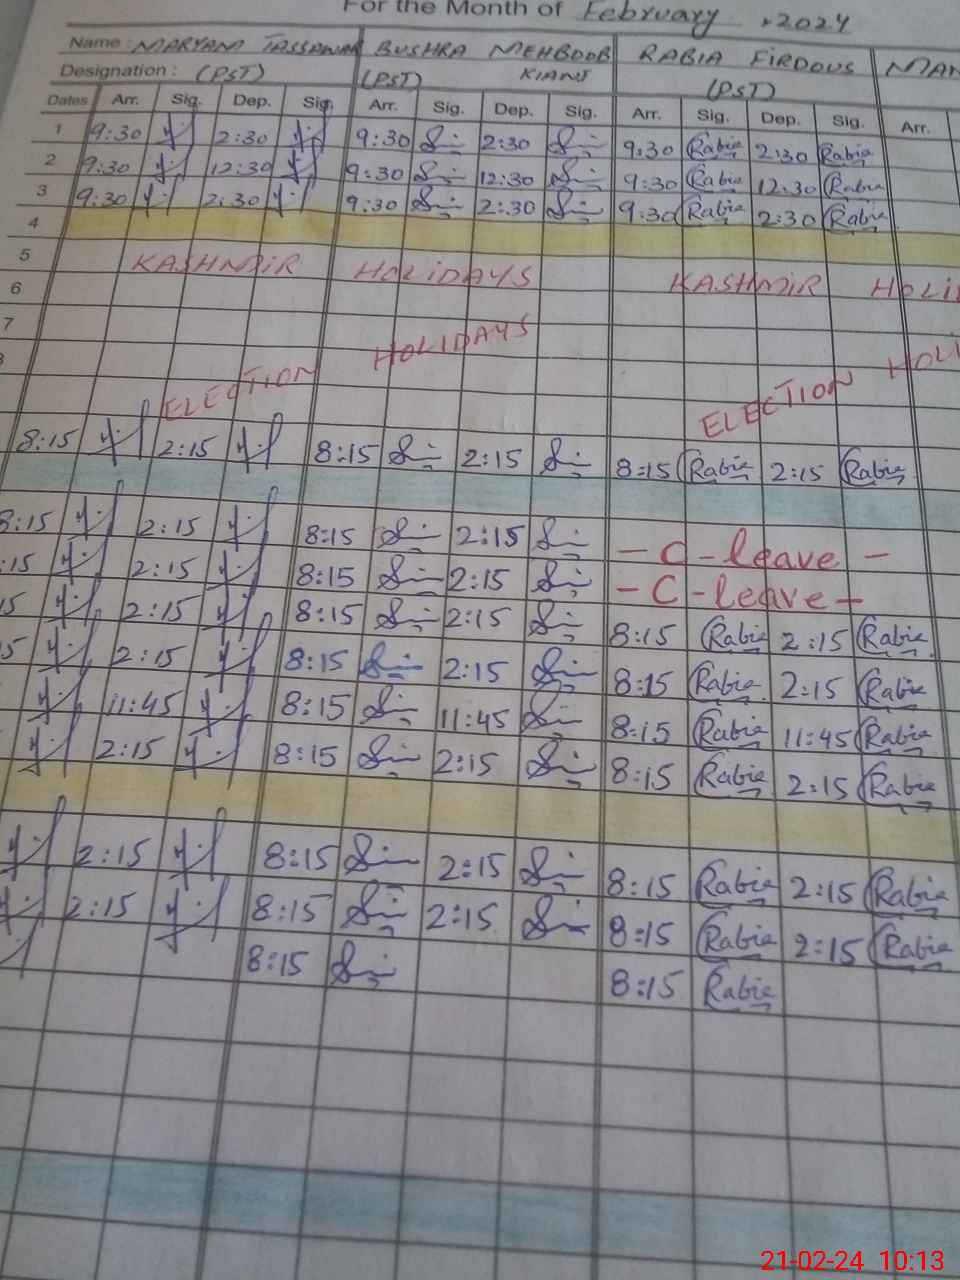 For the Month of February 2024
Name: MARYAM TASSAWAR BUSHRA MEHBOOB KIANI RABIA FIRDOUS
Designation: (PST) (PST) (PST)
Dates Arr. Sig. Dep. Sig. Arr. Sig. Dep. Sig. Arr. Sig. Dep. Sig. Arr.
1 9:30 2:30 9:30 2:30 9:30 Rabia 2:30 Rabia
2 9:30 12:30 9:30 12:30 9:30 Rabia 12:30 Rabia
3 9:30 2:30 9:30 2:30 9:30 Rabia 2:30 Rabia
4
5 KASHMIR HOLIDAYS KASHMIR HOLI
6
7 ELECTION HOLIDAYS ELECTION HOLI
8:15 2:15 8:15 2:15 8:15 Rabia 2:15 Rabia
8:15 2:15 8:15 2:15 - C - leave -
:15 2:15 8:15 2:15 - C - leave -
15 2:15 8:15 2:15 8:15 Rabia 2:15 Rabia
15 2:15 8:15 2:15 8:15 Rabia 2:15 Rabia
11:45 8:15 11:45 8:15 Rabia 11:45 Rabia
2:15 8:15 2:15 8:15 Rabia 2:15 Rabia
2:15 8:15 2:15 8:15 Rabia 2:15 Rabia
2:15 8:15 2:15 8:15 Rabia 2:15 Rabia
8:15 8:15 Rabia
21-02-24 10:13